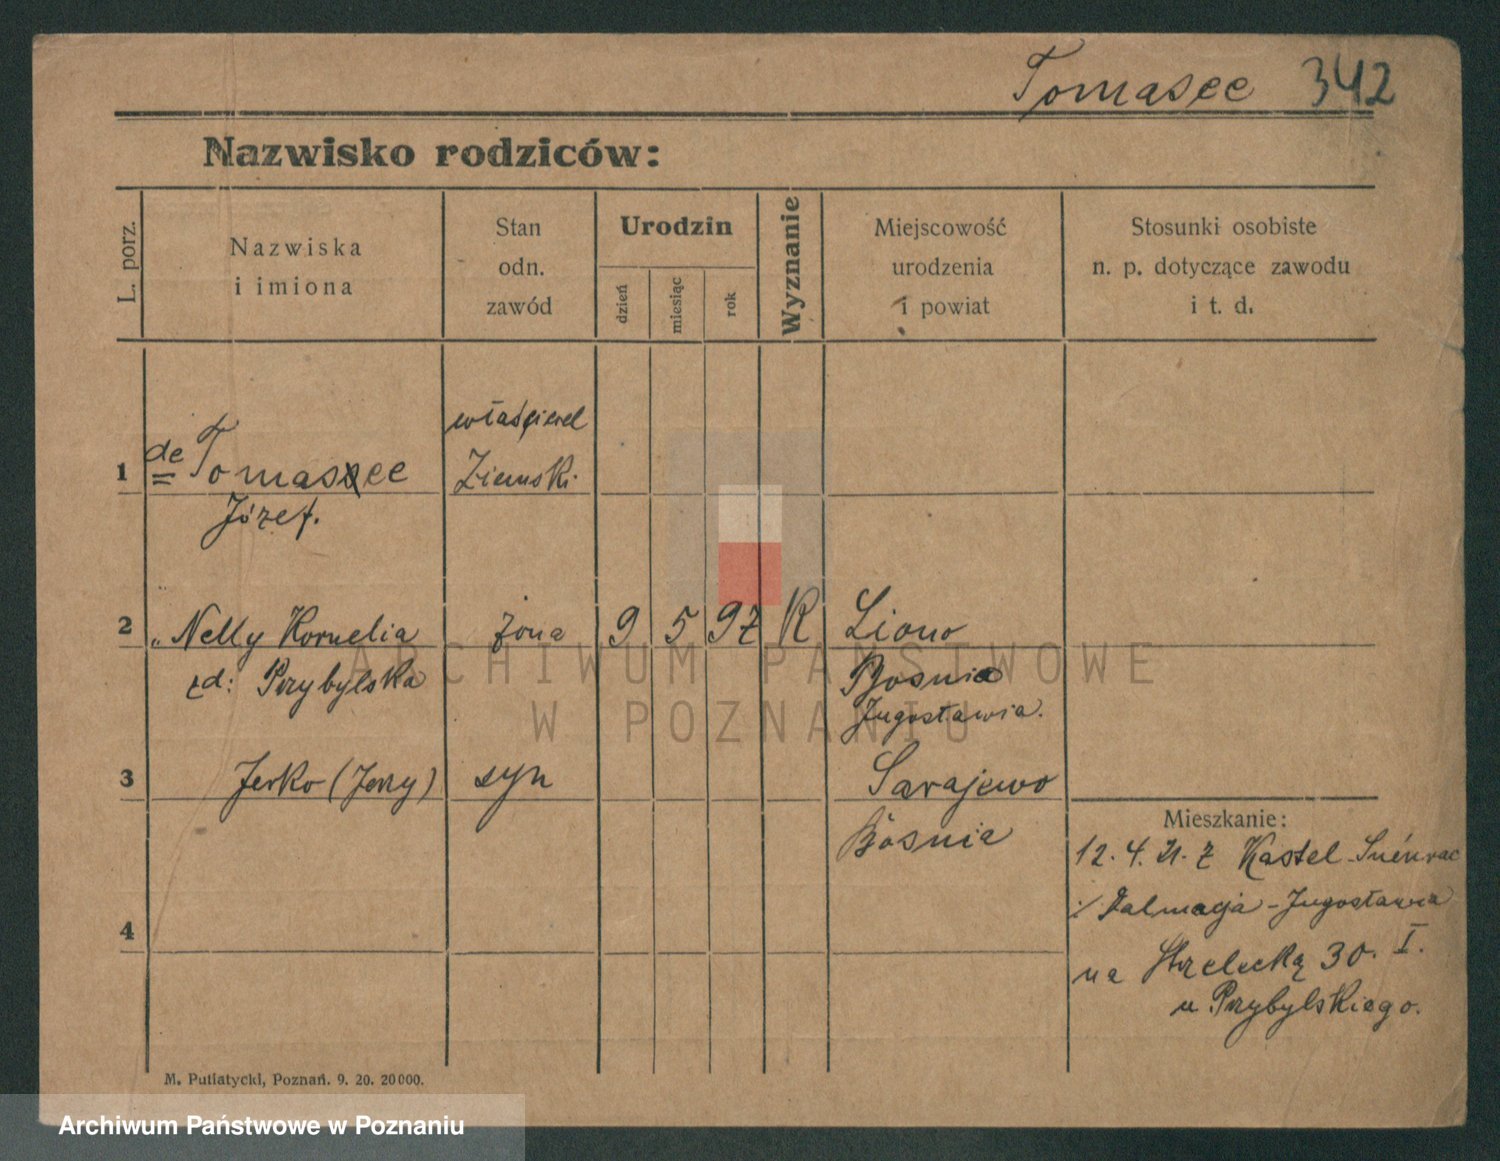 Tomasee 342
Nazwisko rodziców:
L. porz.
Nazwiska
i imiona
Stan
odn.
zawód
Urodzin
dzień
miesiąc
rok
Wyznanie
Miejscowość
urodzenia
i powiat
Stosunki osobiste
n. p. dotyczące zawodu
i t. d.
właściciel
1 de Tomasee Ziemski
Józef.
2 „ Nelly Kornelia żona 9 5 97 K Liono
zd: Przybylska Bosnia
Jugosławia.
3 Jerko (Jerzy) syn Sarajewo
Bosnia
Mieszkanie:
12. 4. 21. z Kastel
i/ Dalmacja - Jugosławia
4
na Strzelecką 30. I.
u Przybylskiego.
M. Putiatycki, Poznań. 9. 20. 20000.
ARCHIWUM PAŃSTWOWE
W POZNANIU
Archiwum Państwowe w Poznaniu